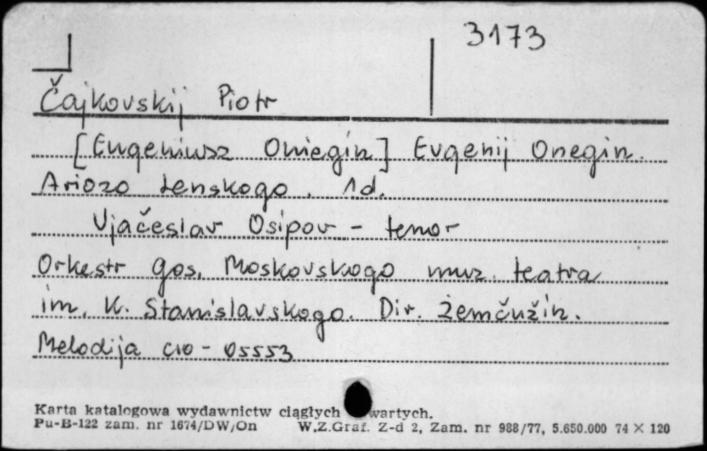 3173
Čajkovskij Piotr
[Eugeniusz Oniegin] Evgenij Onegin.
Ariozo Lenskogo. 1d.
Vjačeslav Osipov - tenor
Orkestr gos. Moskovskogo muz. teatra
im. K. Stanislavskogo. Dir. Žemčužin.
Melodija C10-05553
Karta katalogowa wydawnictw ciągłych wartych.
Pu-B-122 zam. nr 1674/DW/On W.Z.Graf. Z-d 2, Zam. nr 988/77, 5.650.000 74 × 120